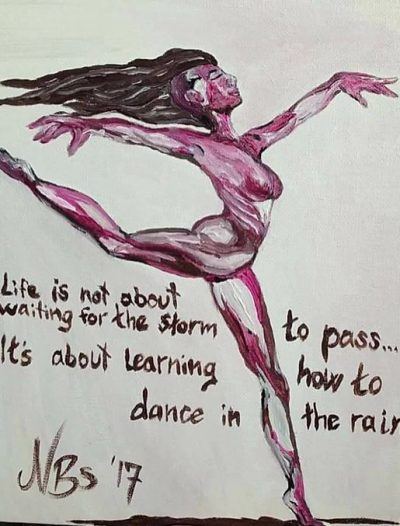 Life is not about
waiting for the storm to pass...
It's about learning how to
dance in the rain
NBs '17